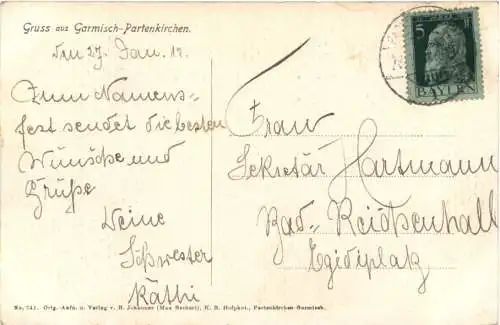 Gruss aus Garmisch-Partenkirchen.
den 27. Jan. 12.
Zum Namens=
fest sendet die besten
Wünsche und
Grüße
Deine
Schwester
Käthi
5
BAYERN
Frau
Sekretär Hartmann
Bad= Reichenhall
Egidiplatz
No. 741. Orig.-Aufn. u. Verlag v. B. Johannes (Max Beckert), K. B. Hofphot., Partenkirchen-Garmisch.